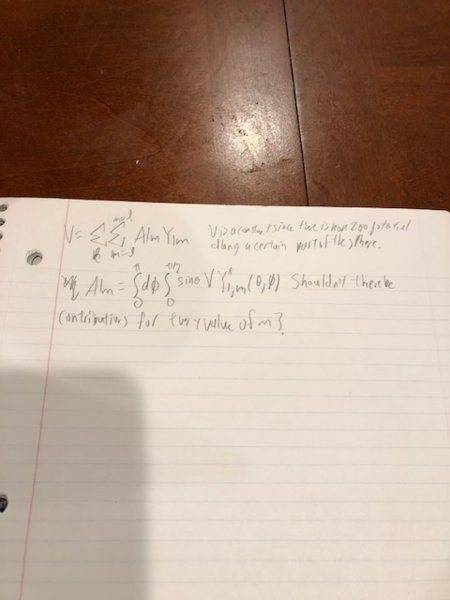 V = Σ_l Σ_{m=-l}^{m=l} Alm Ylm V is a constant since there is non zero potential
along a certain part of the sphere.
Alm = ∫_0^π dφ ∫_0^{π/2} sinθ V Y*_{l,m}(θ,φ) Shouldn't there be
contributions for every value of m?